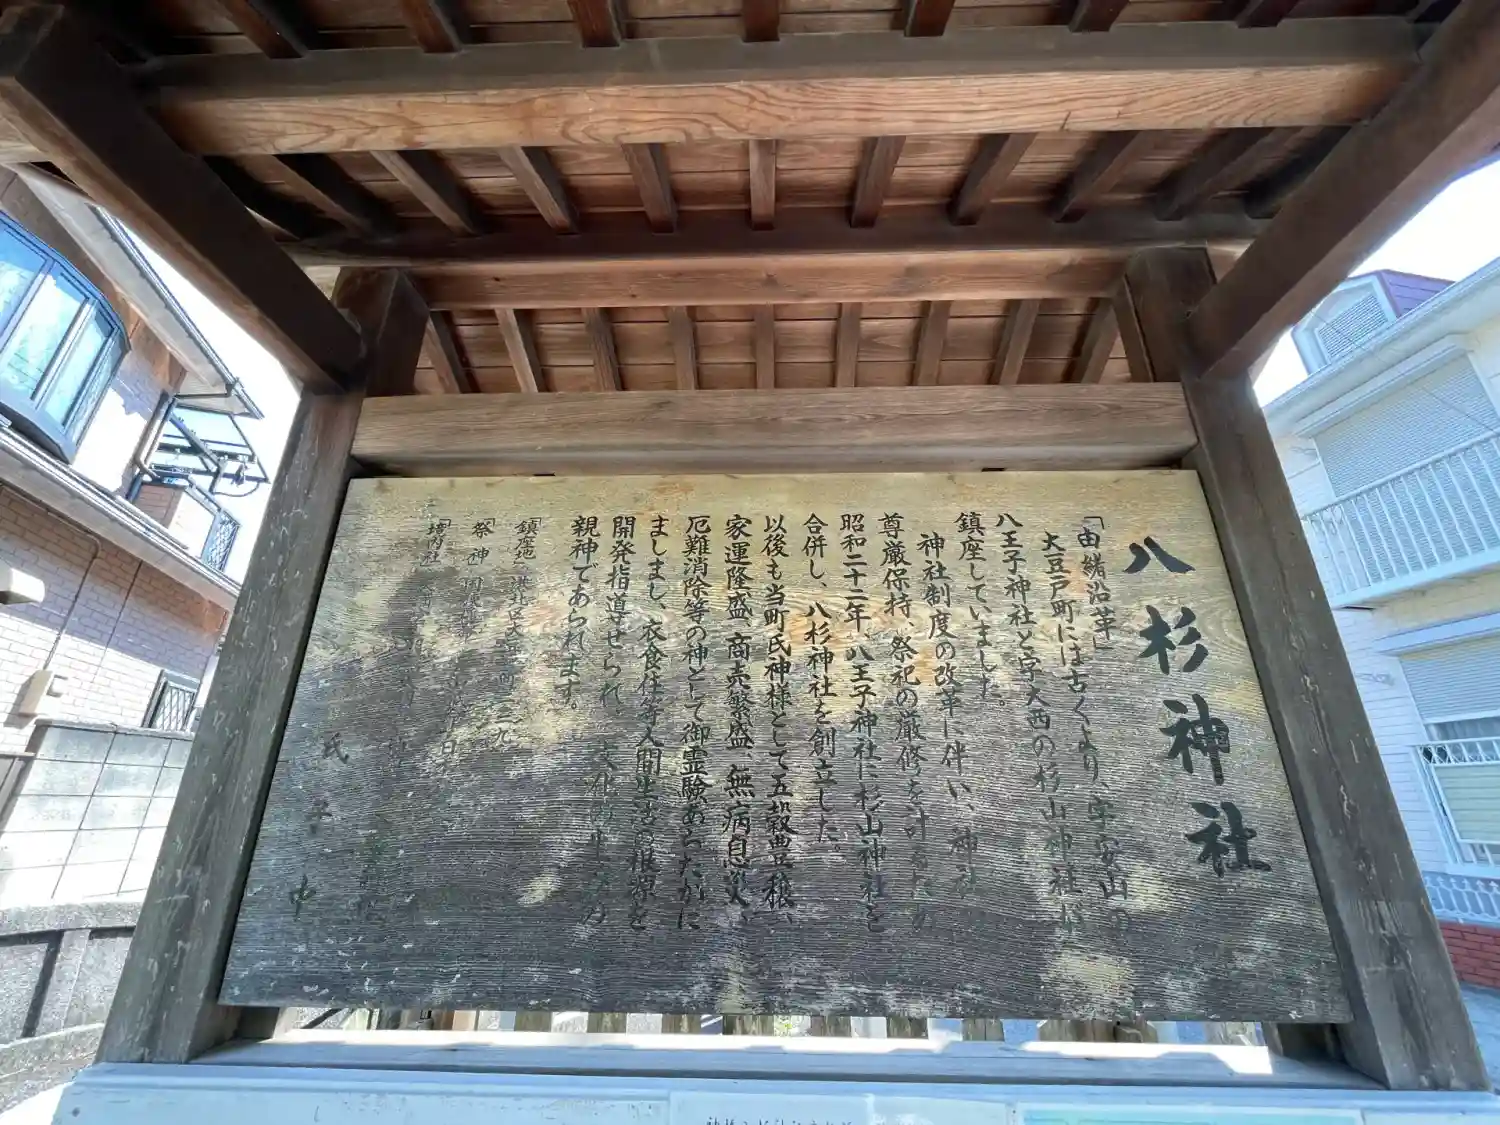 八杉神社
「由緒沿革」
大豆戸町には古くより、字安山の
八王子神社と字大西の杉山神社が
鎮座していました。
神社制度の改革に伴い、神社
尊厳保持、祭祀の厳修を計るための
昭和二十二年、八王子神社に杉山神社を
合併し、八杉神社を創立した。
以後も当町氏神様として五穀豊穣、
家運隆盛、商売繁盛、無病息災、
厄難消除等の神として御霊験あらたかに
ましまし、衣食住等人間生活の根源を
開発指導せられ、文化の
親神であられます。
「鎮座地」港北区大豆戸町
「祭神」
「境内社」
氏子中